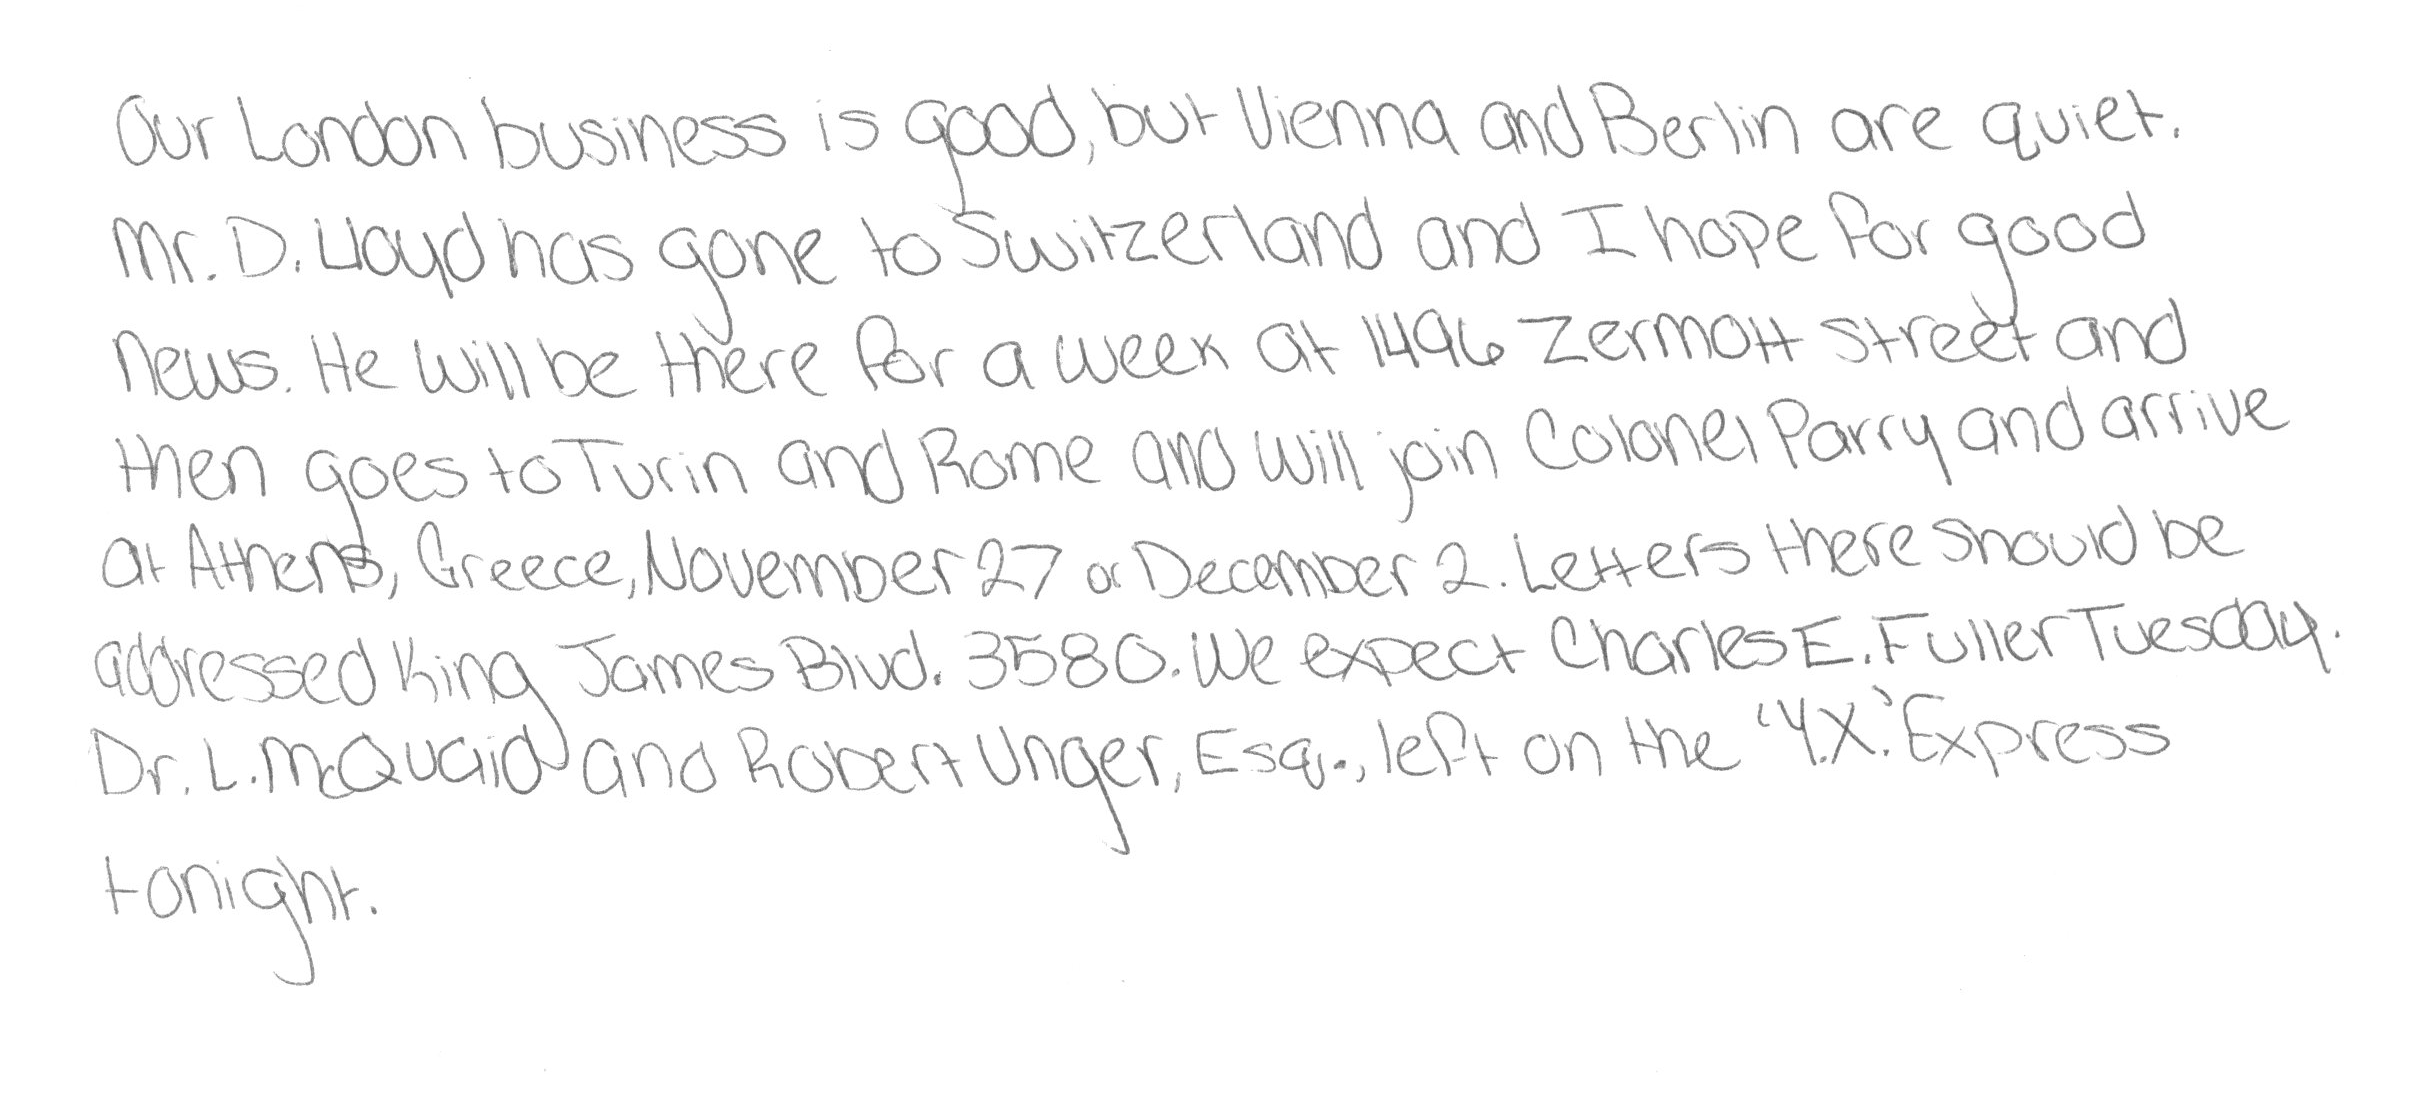 Our London business is good, but Vienna and Berlin are quiet.
Mr. D. Lloyd has gone to Switzerland and I hope for good
news. He will be there for a week at 1496 Zermott street and
then goes to Turin and Rome and will join Colonel Parry and arrive
at Athens, Greece, November 27 or December 2. Letters there should be
addressed King James Blvd. 3580. We expect Charles E. Fuller Tuesday.
Dr. L. McQuaid and Robert Unger, Esq., left on the 'Y.X.' Express
tonight.